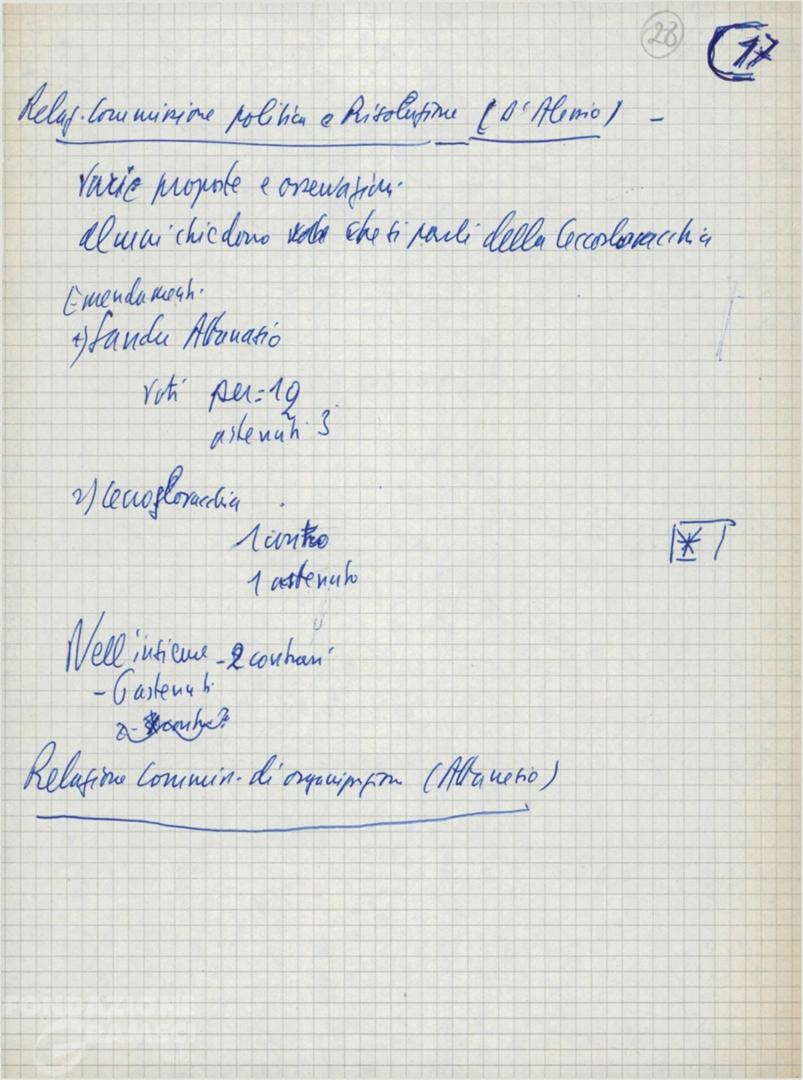 28
17
Relaz. Commissione politica e Risoluzione (D'Alessio) -
Varie proposte e osservazioni.
Alcuni chiedono che si parli della Cecoslovacchia
Emendamenti.
1) Attanasio
Voti per = 19
astenuti 3
2) Cecoslovacchia
1 contro
1 astenuto
Nell'insieme - 2 contrari
- 6 astenuti
Relazione Commiss. di organizzazione (Attanasio)
FONDAZIONE
GRAMSCI